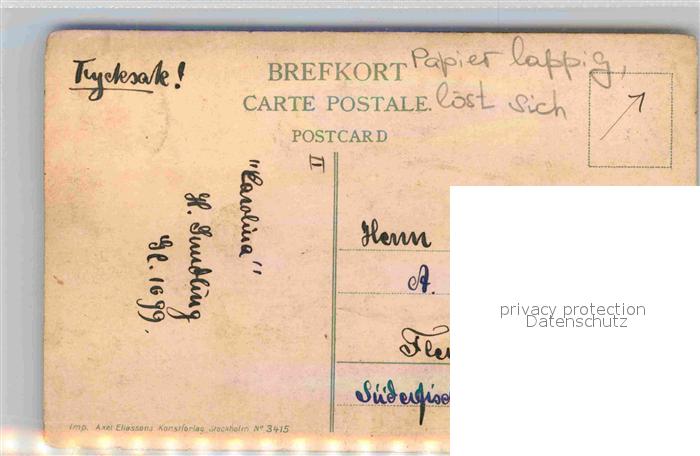 Trycksak!
BREFKORT
CARTE POSTALE.
POSTCARD
Papier lappig,
löst sich
II
"Carolina"
H.
1699.
Herrn
A.
Imp. Axel Eliassons Konstförlag Stockholm No 3415
privacy protection
Datenschutz